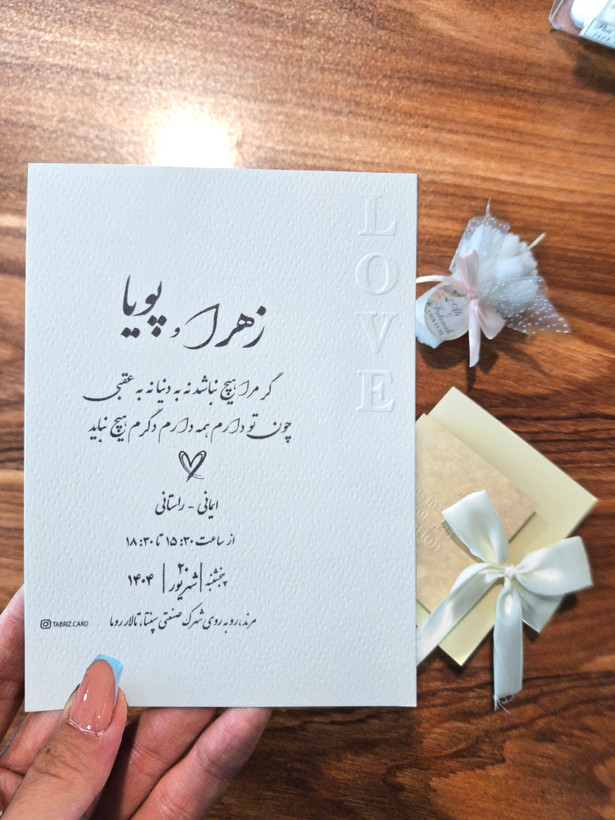 LOVE
زهرا و پویا
گر مرا هیچ نباشد نه به دنیا نه به عقبی
چون تو دارم همه دارم دگرم هیچ نباید
ایمانی - راستانی
از ساعت ۱۵:۳۰ تا ۱۸:۳۰
پنجشنبه | ۲۰ شهریور | ۱۴۰۴
مرند، روبه روی شهرک صنعتی سپنتا، تالار روما
TABRIZ.CARD
Ali